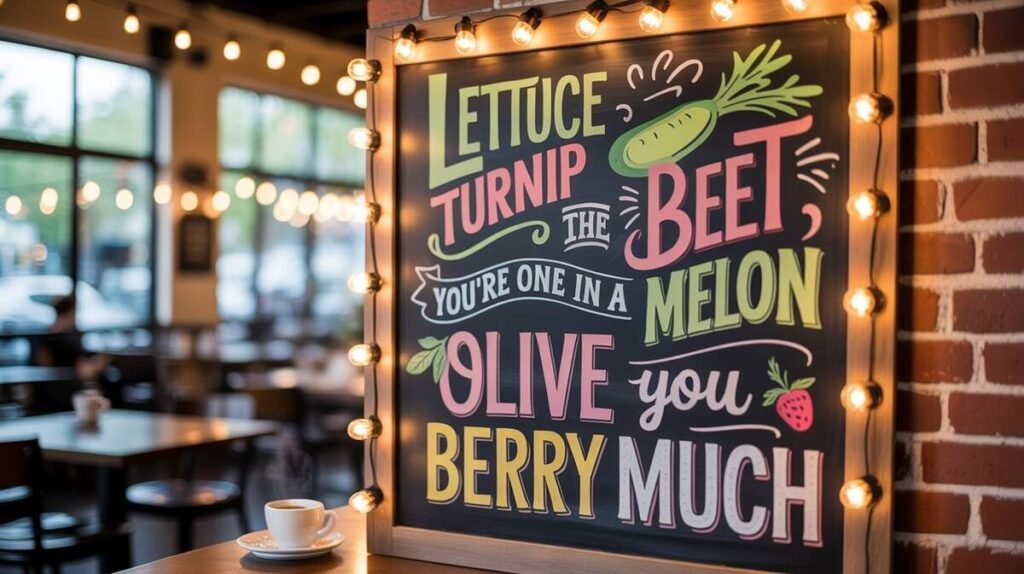 LETTUCE
TURNIP THE BEET
YOU'RE ONE IN A MELON
OLIVE you
BERRY MUCH